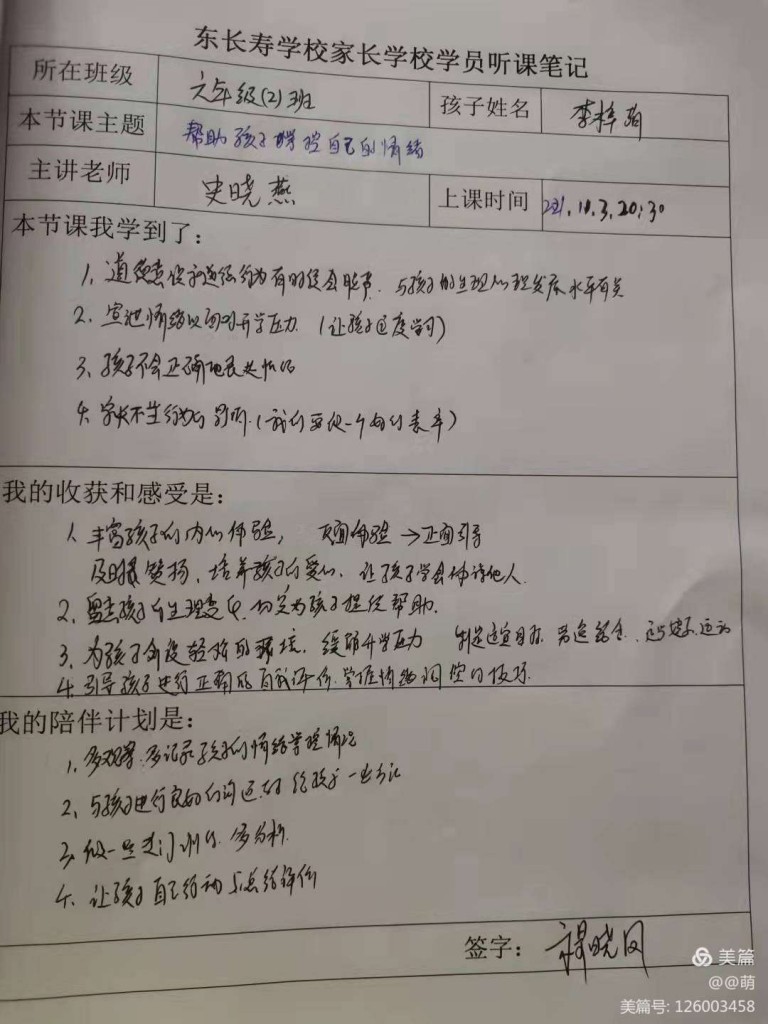 东长寿学校家长学校学员听课笔记
所在班级 六年级(2)班 孩子姓名 李梓
本节课主题 帮助孩子掌控自己的情绪
主讲老师 史晓燕 上课时间 221.10.3.20:30
本节课我学到了:
1、道德意识和道德行为有时候会脱节. 与孩子的生理心理发展水平有关
2、宣泄情绪以面对升学压力 (让孩子适度学习)
3、孩子不会正确地表达情绪
4、家长不当行为的影响.(我们要做一个好的表率)
我的收获和感受是:
1、丰富孩子的内心体验, 负面体验→正面引导
及时 赞扬、培养孩子的爱心、让孩子学会体谅他人.
2、留意孩子的生理变化、 为孩子提供帮助.
3、为孩子创设轻松的环境、缓解升学压力 制定适宜目标、劳逸结合、 运动
4、引导孩子进行正确的自我评价.掌握情绪调控的技巧.
我的陪伴计划是:
1、多观察.多记录孩子的情绪掌控情况
2、与孩子进行良好的沟通. 给孩子一些
3、做一些 训练、多分析.
4、让孩子自己行动与总结评价
签字: 晓凤
美篇
@@萌
美篇号: 126003458